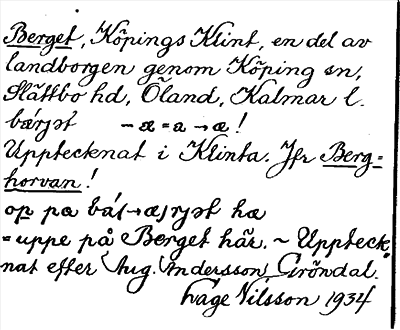 Berget, Köpings Klint, en del av
landborgen genom Köping sn,
Slättbo hd, Öland, Kalmar l.
bárjət – æ = a → æ!
Upptecknat i Klinta. Jfr Berg=
horvan!
op pa bá(→æ)rjət hæ
= uppe på Berget här. ~ Uppteck=
nat efter Aug. Andersson, Gröndal.
Lage Nilsson 1934